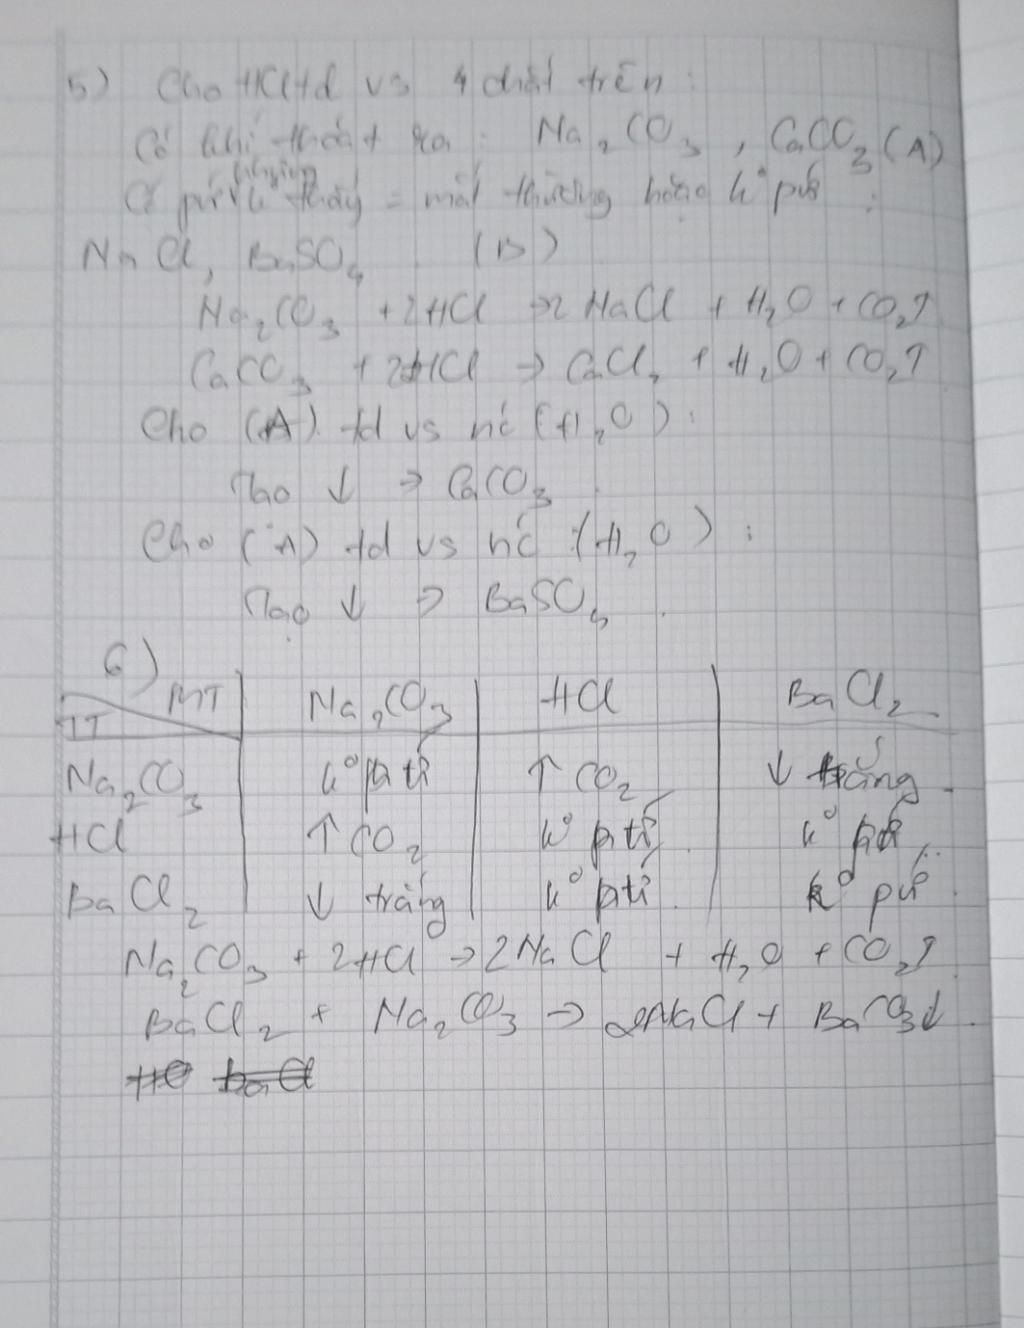 5) Cho HCl td vs 4 chất trên:
Có khí thoát ra: Na₂CO₃, CaCO₃ (A)
hiện
Có pứ k thấy = mắt thường hoặc k° pứ:
NaCl, BaSO₄ (B)
Na₂CO₃ + 2HCl → 2NaCl + H₂O + CO₂↑
CaCO₃ + 2HCl → CaCl₂ + H₂O + CO₂↑
Cho (A) td vs nc (H₂O):
Tạo ↓ → CaCO₃
Cho (A) td vs nc (H₂O):
Tạo ↓ → BaSO₄.
6)
TT MT Na₂CO₃ HCl BaCl₂
Na₂CO₃ k° pứ ↑ CO₂ ↓ trắng
HCl ↑ CO₂ k° pứ k° pứ
BaCl₂ ↓ trắng k° pứ k° pứ
Na₂CO₃ + 2HCl → 2NaCl + H₂O + CO₂↑
BaCl₂ + Na₂CO₃ → 2NaCl + BaCO₃↓